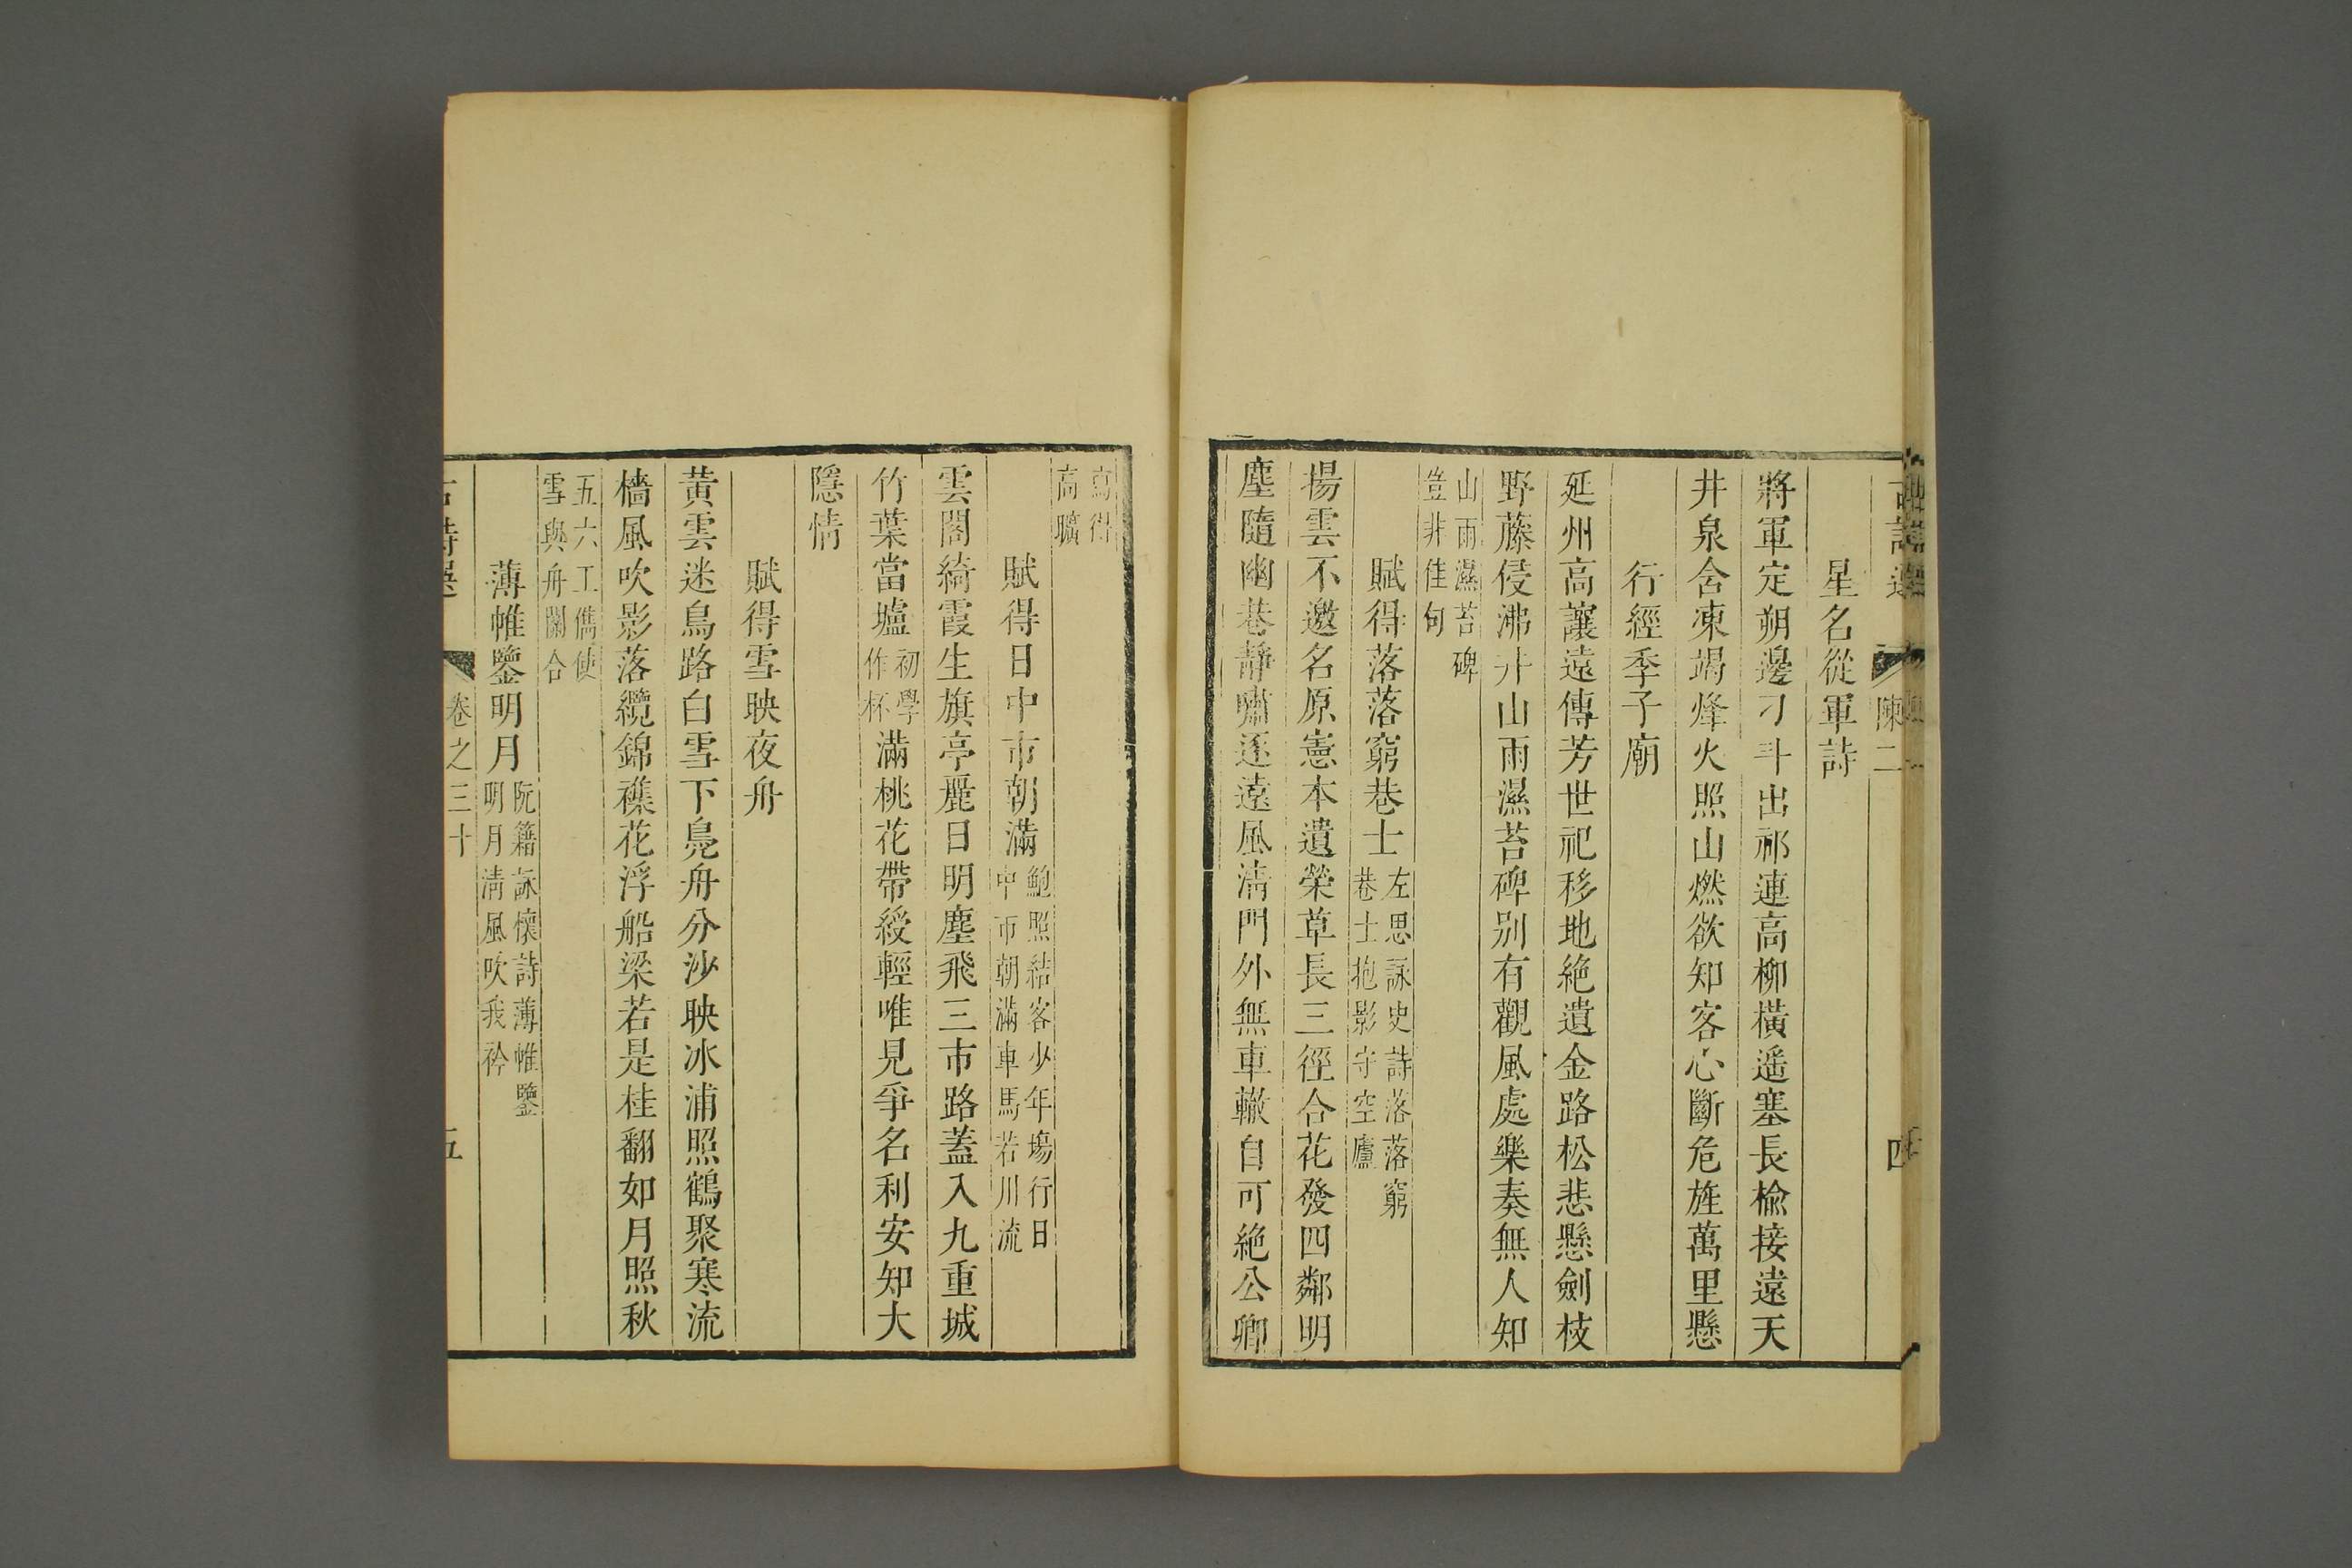 陳二
四
星名從軍詩
將軍定朔邊刁斗出祁連高柳橫遥塞長楡接遠天
井泉含凍竭烽火照山燃欲知客心斷危旌萬里懸
行經季子廟
延州高讓遠傳芳世祀移地絶遺金路松悲懸劍枝
野藤侵沸井山雨濕苔碑別有觀風處樂奏無人知
山雨濕苔碑
豈非佳句
賦得落落窮巷士左思詠史詩落落窮
巷士抱影守空廬
揚雲不邀名原憲本遺榮草長三徑合花發四鄰明
塵隨幽巷靜嘯逐遠風淸門外無車轍自可絶公卿
寫得
高曠
賦得日中市朝滿鮑照結客少年塲行日
中市朝滿車馬若川流
雲閣綺霞生旗亭麗日明塵飛三市路蓋入九重城
竹葉當壚初學
作杯滿桃花帶綬輕唯見爭名利安知大
隱情
賦得雪映夜舟
黃雲迷鳥路白雪下鳧舟分沙映冰浦照鶴聚寒流
檣風吹影落纜錦襍花浮船梁若是桂翻如月照秋
五六工儁使
雪與舟闌合
薄帷鑒明月阮籍詠懷詩薄帷鑒
明月淸風吹我衿
卷之三十
五